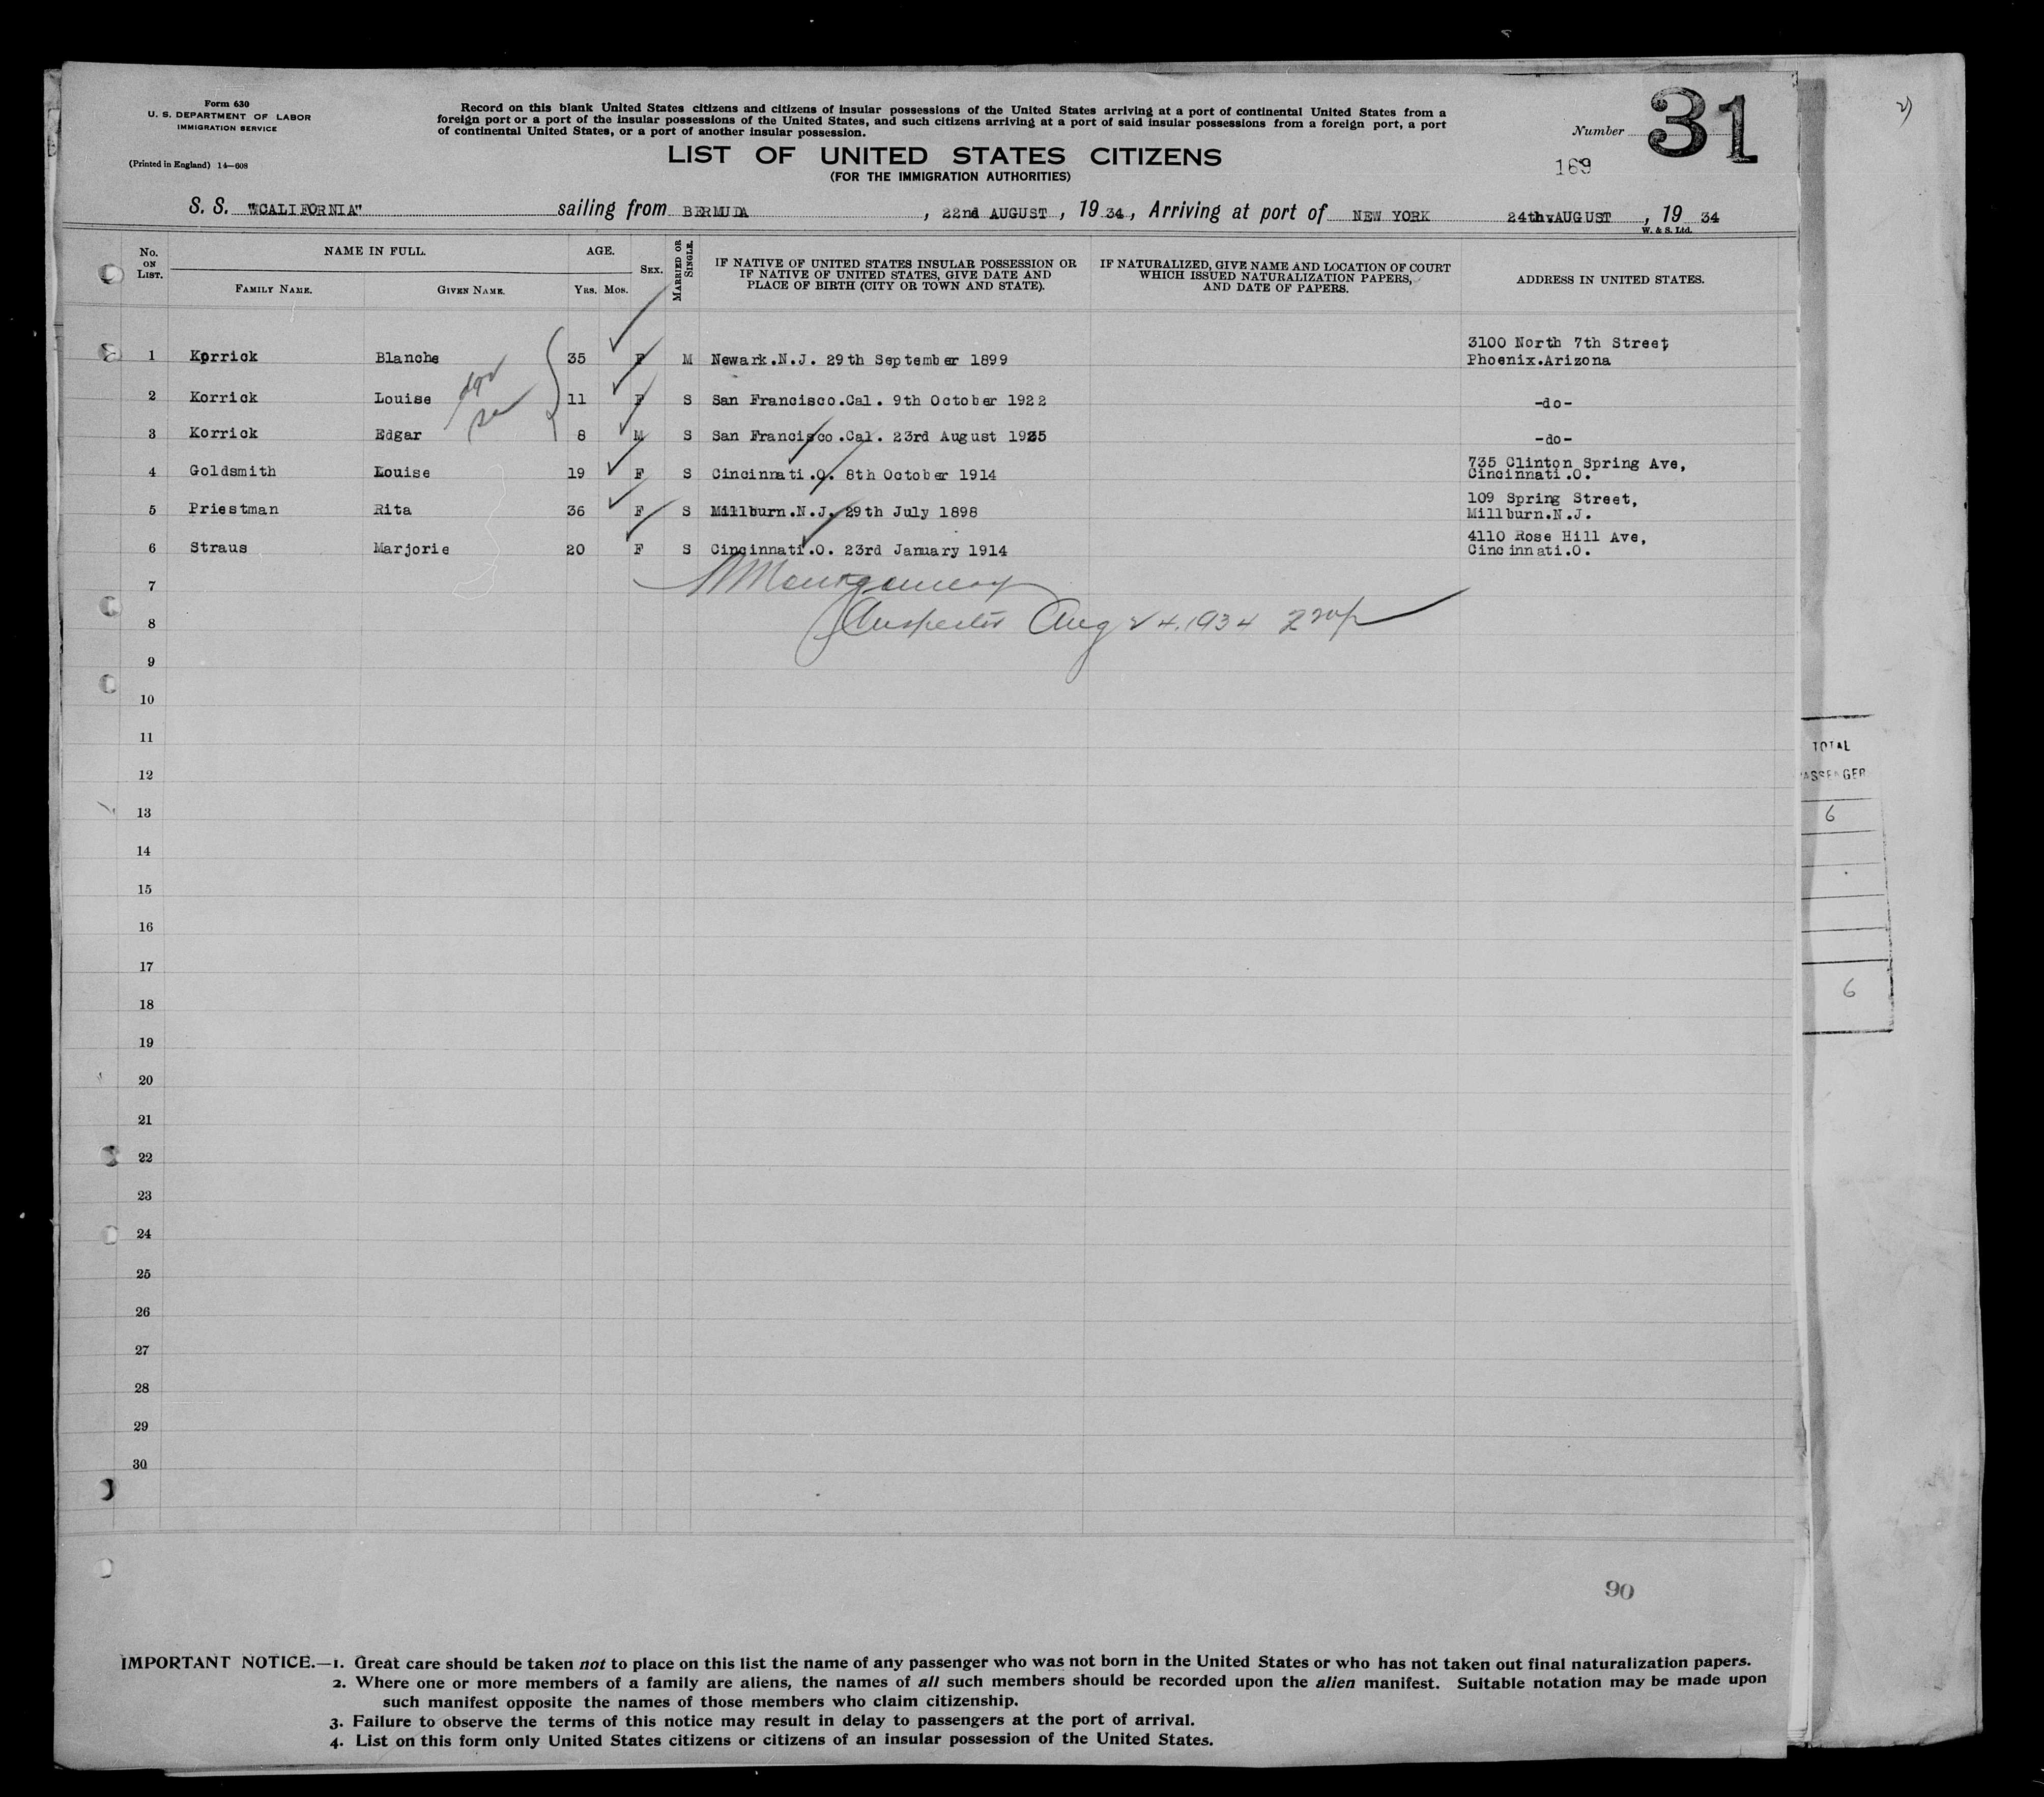 Form 630
U. S. DEPARTMENT OF LABOR
IMMIGRATION SERVICE
(Printed in England) 14—608
Record on this blank United States citizens and citizens of insular possessions of the United States arriving at a port of continental United States from a
foreign port or a port of the insular possessions of the United States, and such citizens arriving at a port of said insular possessions from a foreign port, a port
of continental United States, or a port of another insular possession.
Number 31
169
LIST OF UNITED STATES CITIZENS
(FOR THE IMMIGRATION AUTHORITIES)
S. S. "CALIFORNIA" sailing from BERMUDA, 22nd AUGUST, 19 34, Arriving at port of NEW YORK 24th AUGUST, 19 34
W. & S. Ltd.
No. ON LIST. NAME IN FULL. FAMILY NAME. GIVEN NAME. AGE. YRS. MOS. SEX. MARRIED OR SINGLE. IF NATIVE OF UNITED STATES INSULAR POSSESSION OR IF NATIVE OF UNITED STATES, GIVE DATE AND PLACE OF BIRTH (CITY OR TOWN AND STATE). IF NATURALIZED, GIVE NAME AND LOCATION OF COURT WHICH ISSUED NATURALIZATION PAPERS, AND DATE OF PAPERS. ADDRESS IN UNITED STATES.
1 Korrick Blanche 35 F M Newark.N.J. 29th September 1899 3100 North 7th Street, Phoenix.Arizona
2 Korrick Louise 11 F S San Francisco.Cal. 9th October 1922 -do-
3 Korrick Edgar 8 M S San Francisco.Cal. 23rd August 1925 -do-
4 Goldsmith Louise 19 F S Cincinnati.O. 8th October 1914 735 Clinton Spring Ave, Cincinnati.O.
5 Priestman Rita 36 F S Millburn.N.J. 29th July 1898 109 Spring Street, Millburn.N.J.
6 Straus Marjorie 20 F S Cincinnati.O. 23rd January 1914 4110 Rose Hill Ave, Cincinnati.O.
7 Montgomery
8 Inspector Aug 24.1934
9
10
11
12
13
14
15
16
17
18
19
20
21
22
23
24
25
26
27
28
29
30
TOTAL
PASSENGER
6
6
90
IMPORTANT NOTICE.—1. Great care should be taken not to place on this list the name of any passenger who was not born in the United States or who has not taken out final naturalization papers.
2. Where one or more members of a family are aliens, the names of all such members should be recorded upon the alien manifest. Suitable notation may be made upon
such manifest opposite the names of those members who claim citizenship.
3. Failure to observe the terms of this notice may result in delay to passengers at the port of arrival.
4. List on this form only United States citizens or citizens of an insular possession of the United States.